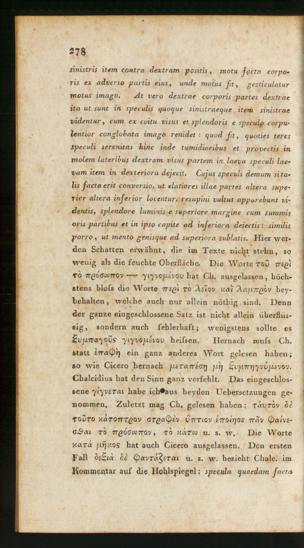 278
sinistris item contra dextram positis, motu facto corpo-
ris ex adverso partis eius, unde motus fit, gesticulatur
motus imago. At vero dextrae corporis partes dextrae
ita ut sunt in speculis quoque sinistraeque item sinistrae
videntur, cum ex coitu visus et splendoris e speculo corpu-
lentior conglobata imago renidet: quod fit, quoties teres
speculi serenitas hinc inde tumidioribus et provectis in
molem lateribus dextram visus partem in laeva speculi lae-
vam item in dexteriora dejecit. Cujus speculi demum sita-
lis facta erit conversio, ut elatiores illae partes altera supe-
rior altera inferior locentur, resupini vultus apporebunt vi-
dentis, splendore luminis e superiore margine cum summis
oris partibus et in ipso capite ad inferiora deiectis: similis
porro, ut mento genisque ad superiora sublatis. Hier wer-
den Schatten erwähnt, die im Texte nicht stehn, so
wenig als die feuchte Oberfläche. Die Worte τοῦ περὶ
τὸ πρόσωπον — γιγνομένου hat Ch. ausgelassen, höch-
stens bloſs die Worte περὶ τὸ λεῖον καὶ λαμπρὸν bey-
behalten, welche auch nur allein nöthig sind. Denn
der ganze eingeschlossene Satz ist nicht allein überflüs-
sig, sondern auch fehlerhaft; wenigstens sollte es
ξυμπαγοῦς γιγνομένου heiſsen. Hernach muſs Ch.
statt ἐπαφὴ ein ganz anderes Wort gelesen haben;
so wie Cicero hernach μεταπέσῃ μὴ ξυμπηγνύμενον.
Chalcidius hat den Sinn ganz verfehlt. Das eingeschlos-
sene γίγνεται habe ich aus beyden Uebersetzungen ge-
nommen. Zuletzt mag Ch. gelesen haben: ταὐτὸν δὲ
τοῦτο κάτοπτρον στραφὲν ὕπτιον ἐποίησε πᾶν φαίνε-
σθαι τὸ πρόσωπον, τὸ κάτω u. s. w. Die Worte
κατὰ μῆκος hat auch Cicero ausgelassen. Den ersten
Fall δεξιὰ δὲ φαντάζεται u. s. w. bezieht Chalc. im
Kommentar auf die Hohlspiegel: specula quaedam facta